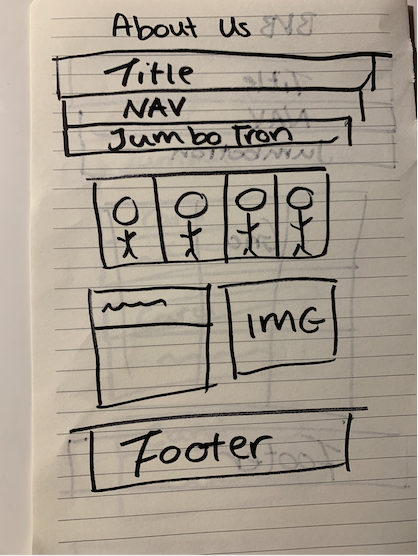 About Us
Title
NAV
JumboTron
IMG
Footer